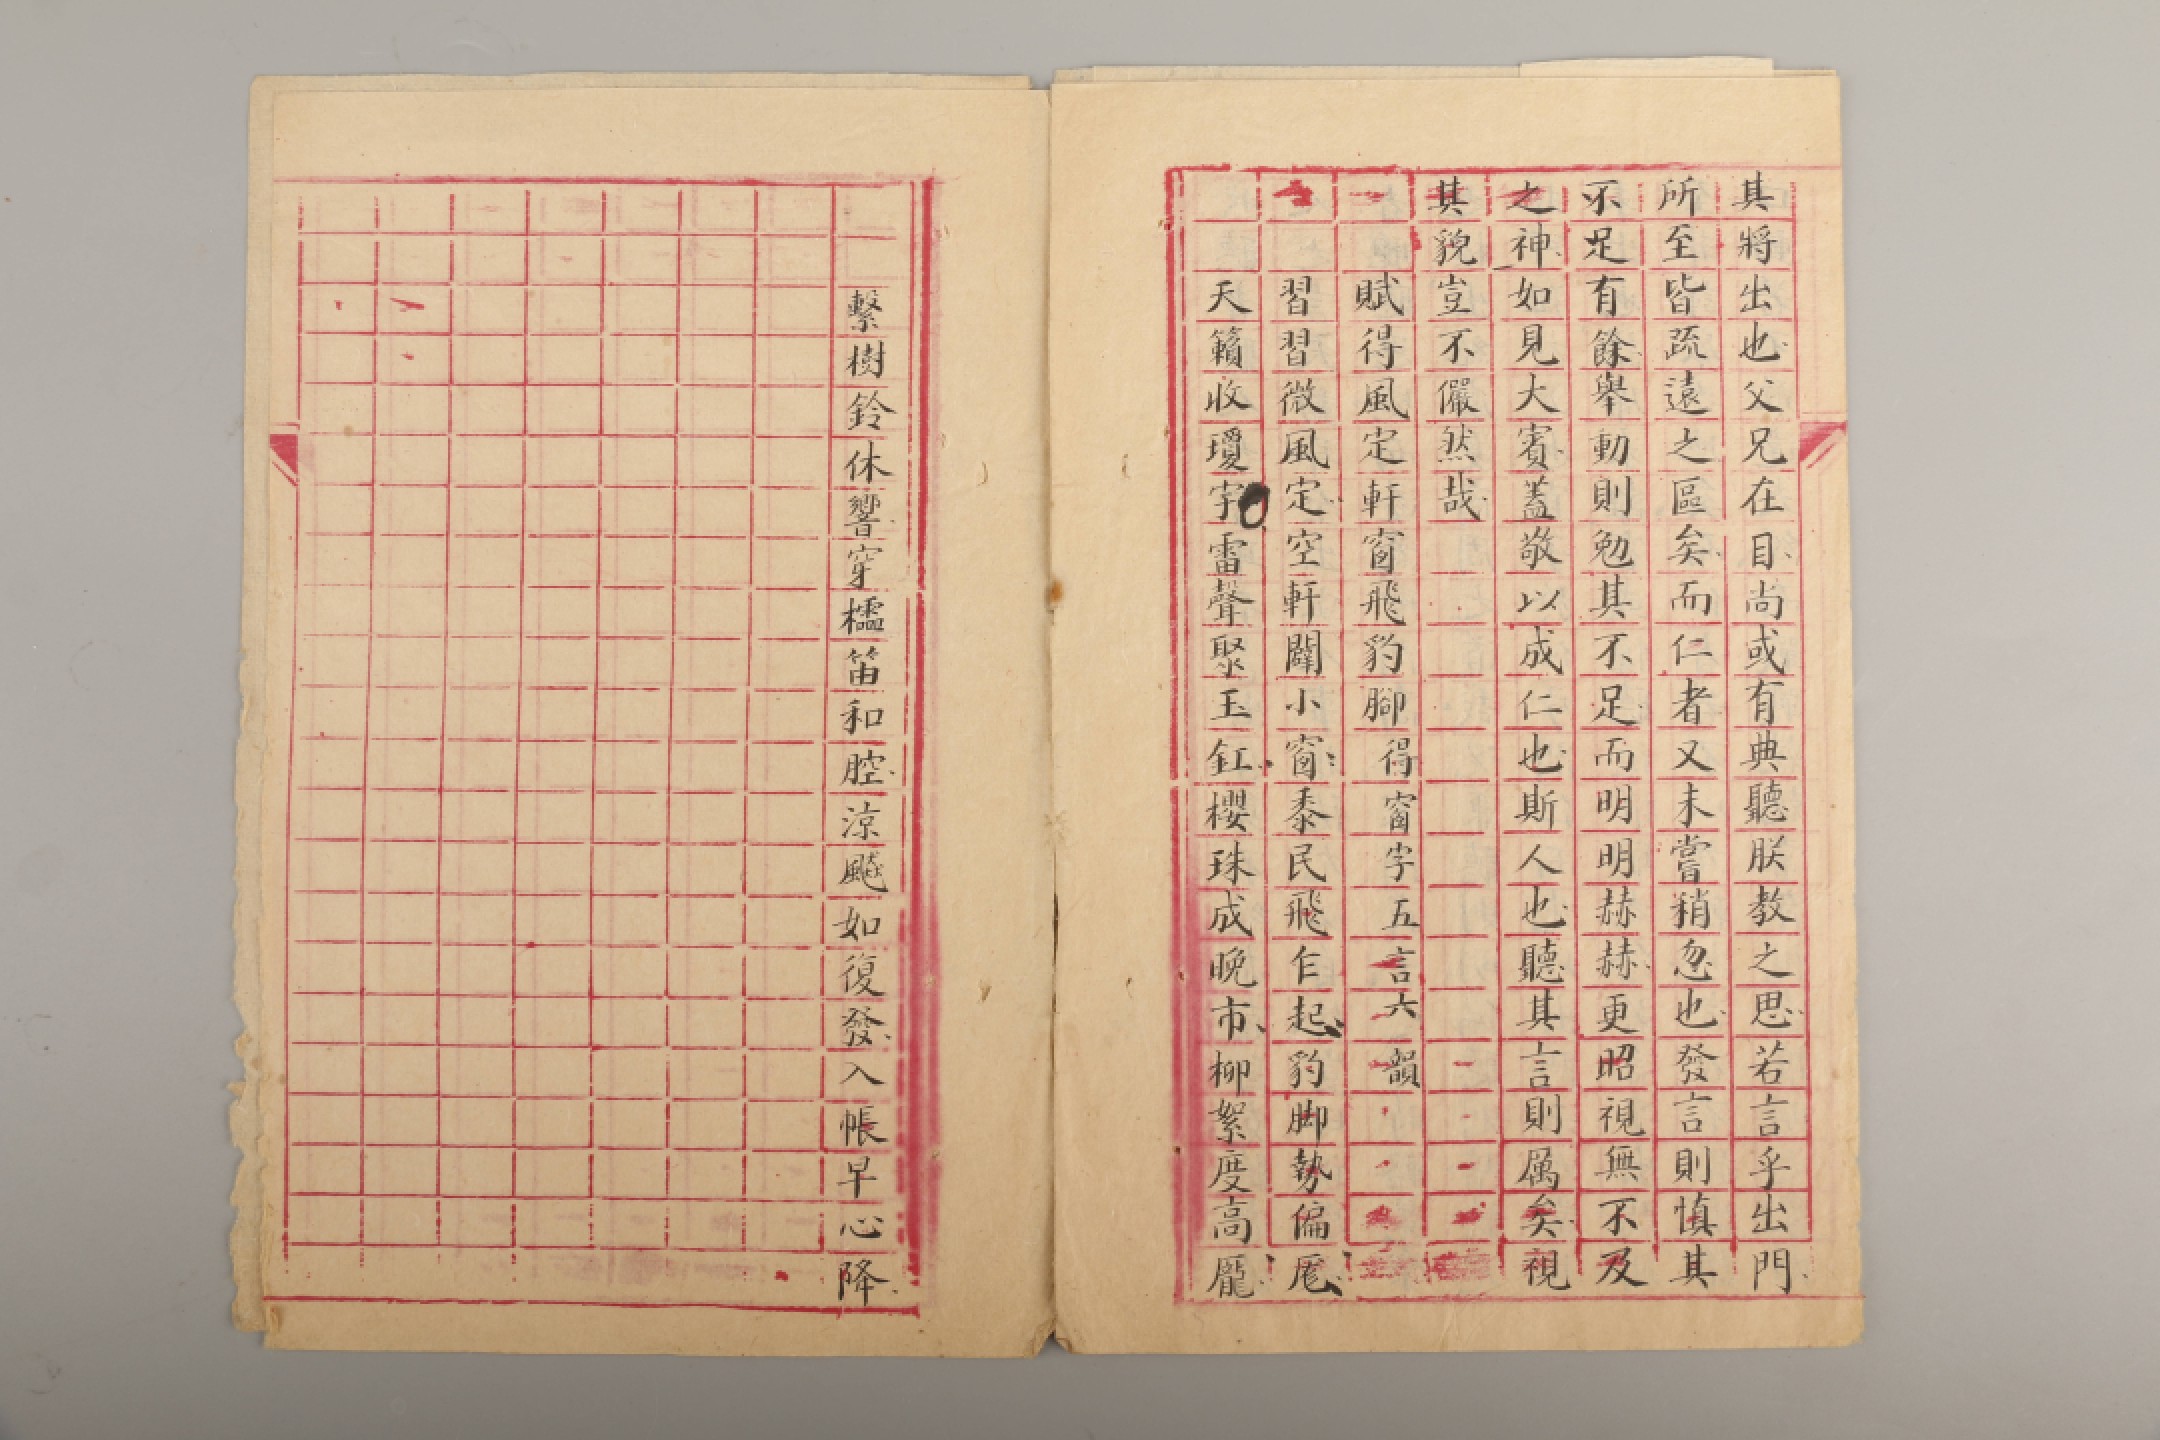 其將出也父兄在目尚或有典聽朕教之思若言乎出門
所至皆疏遠之區矣而仁者又未嘗稍忽也發言則慎其
不足有餘舉動則勉其不足而明明赫赫更昭視無不及
之神如見大賓蓋敬以成仁也斯人也聽其言則厲矣視
其貌豈不儼然哉
賦得風定軒窗飛豹腳得窗字五言六韻
習習微風定空軒闢小窗黍民飛乍起豹脚勢偏尨
天籟收瓊宇雷聲聚玉釭櫻珠成晚市柳絮度高龎
繫樹鈴休響穿櫺笛和腔涼颸如復發入帳早心降